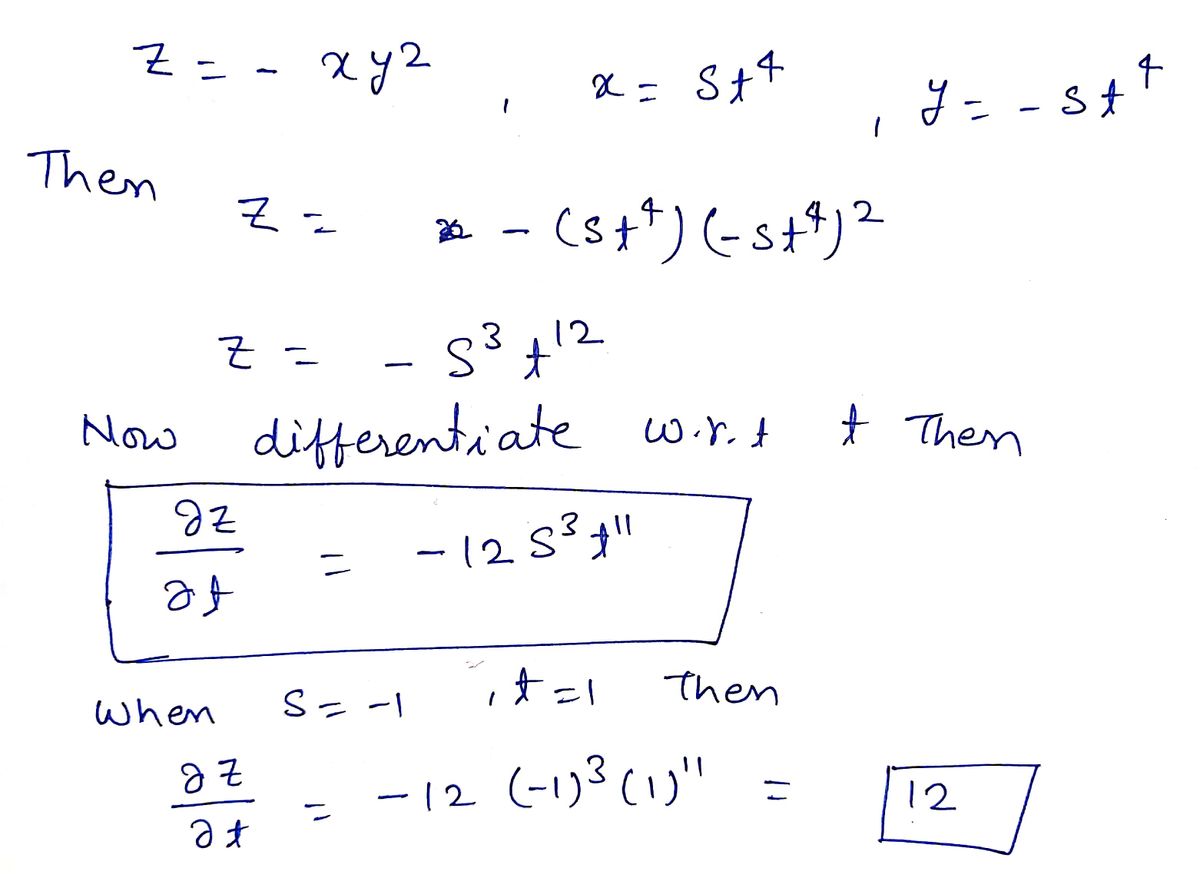 z = - xy2 , x = st⁴ , y = - st⁴
Then
z = - (st⁴) (-st⁴)²
z = - s³ t¹²
Now differentiate w.r.t t Then
∂z/∂t = -12 s³ t¹¹
when s = -1 , t = 1 Then
∂z/∂t = -12 (-1)³ (1)¹¹ = 12